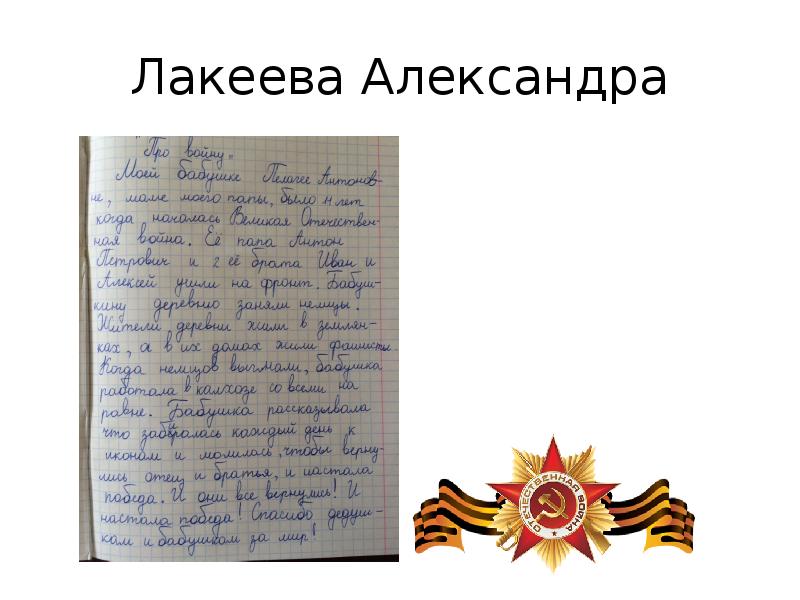 Лакеева Александра
"Про войну"
Моей бабушке Пелагее Антонов-
не, маме моего папы, было 11 лет
когда началась Великая Отечествен-
ная война. Её папа Антон
Петрович и 2 её брата Иван и
Алексей ушли на фронт. Бабуш-
кину деревню заняли немцы.
Жители деревни жили в землян-
ках, а в их домах жили фашисты.
Когда немцов выгнали, бабушка
работала в калхозе со всеми на
равне. Бабушка рассказывала
что забиралась каждый день к
иконам и молилась, чтобы верну-
лись отец и братья, и настала
победа. И они все вернулись! И
настала победа! Спасибо дедуш-
кам и бабушкам за мир!
ОТЕЧЕСТВЕННАЯ ВОЙНА